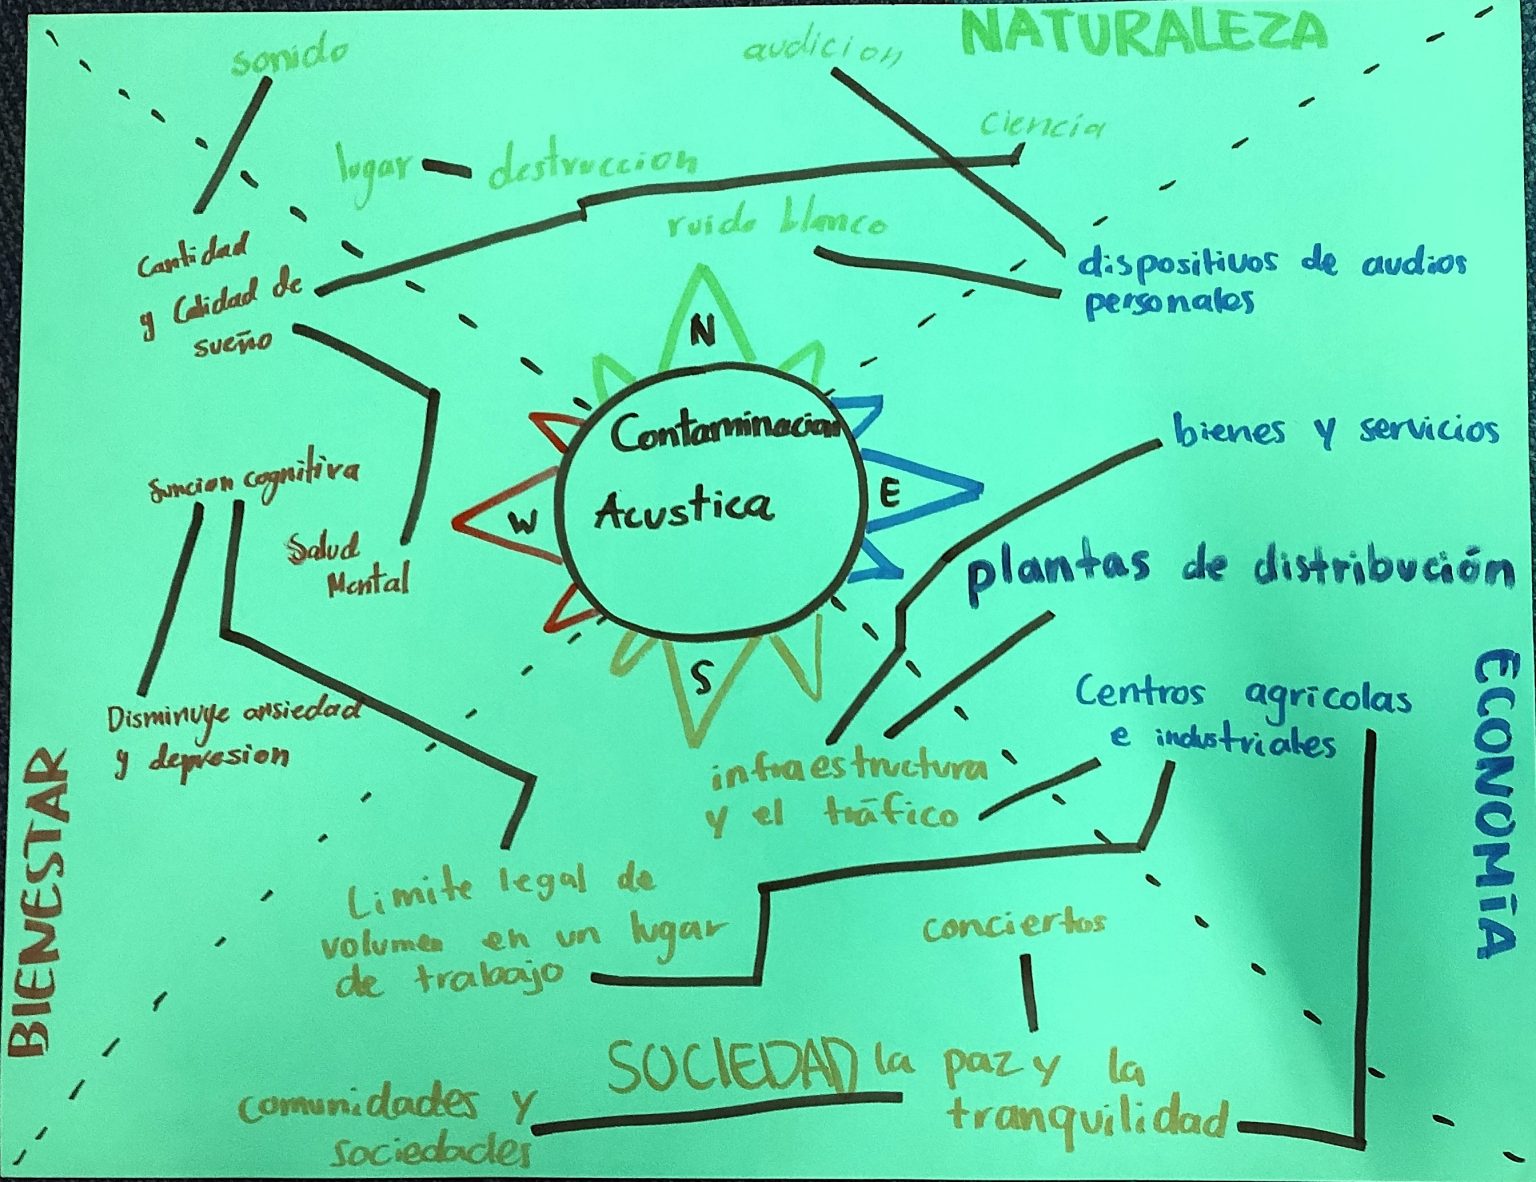 NATURALEZA
sonido
audicion
ciencia
lugar
destruccion
ruido blanco
Cantidad
y Calidad de
sueño
dispositivos de audios
personales
N
Contaminacion
Acustica
W
E
S
bienes y servicios
funcion cognitiva
Salud
Mental
plantas de distribución
ECONOMÍA
Centros agrícolas
e industriales
Disminuye ansiedad
y depresion
BIENESTAR
infraestructura
y el tráfico
Limite legal de
volumen en un lugar
de trabajo
conciertos
SOCIEDAD
la paz y la
tranquilidad
comunidades y
sociedades